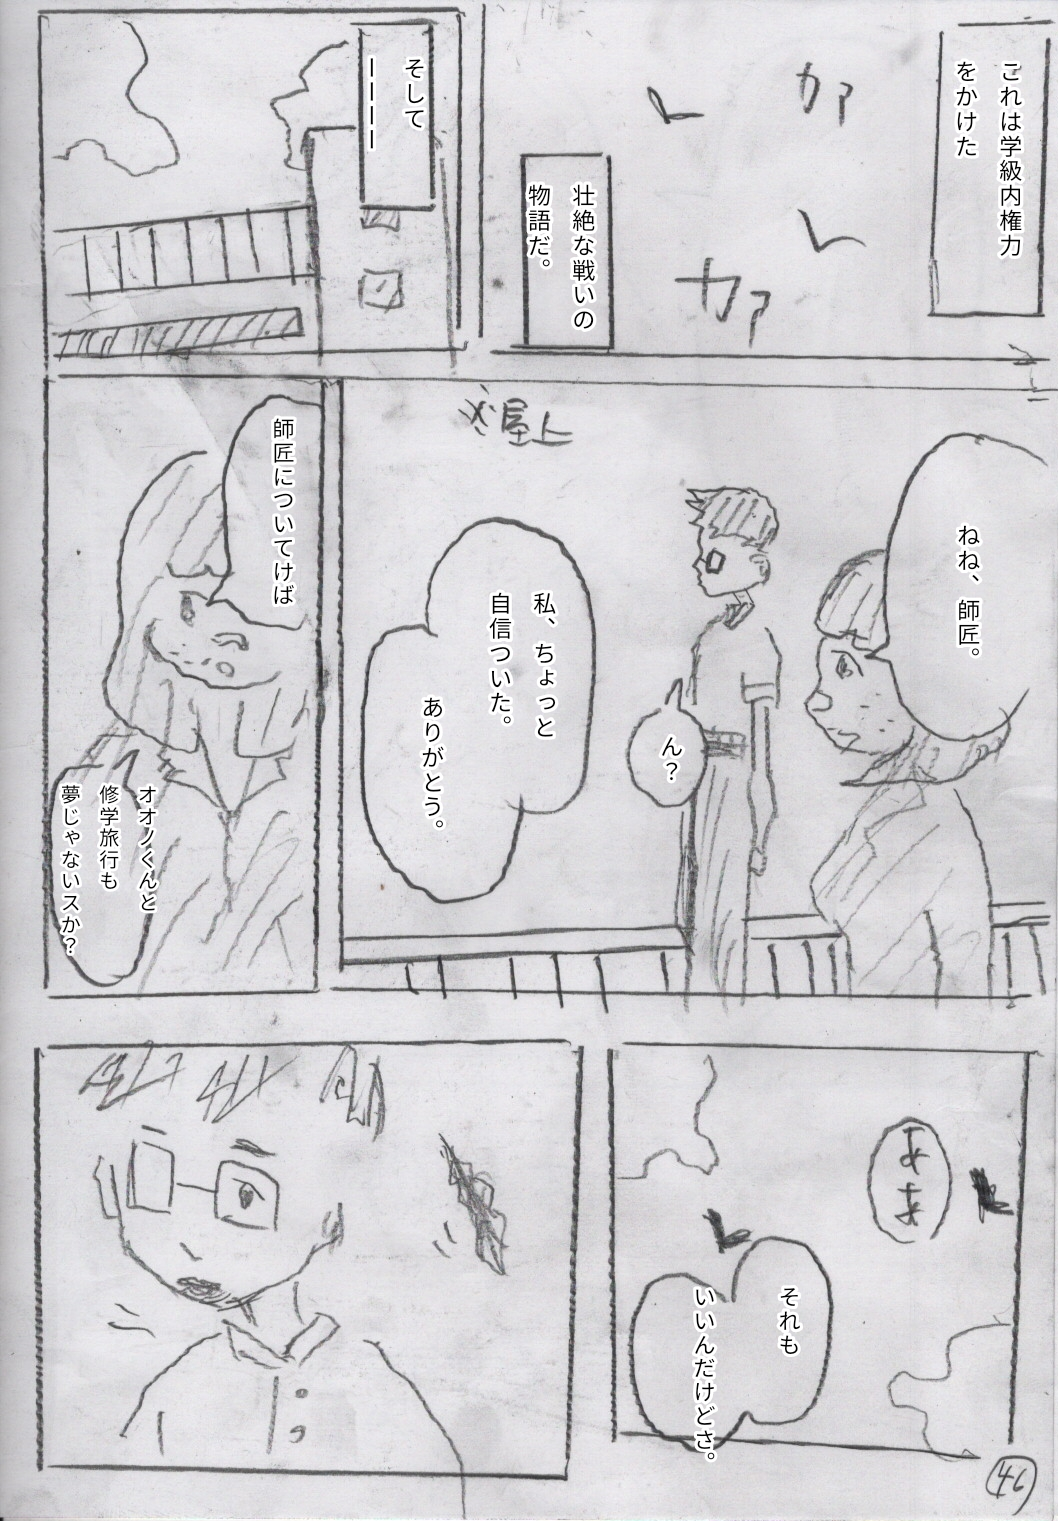 これは学級内権力
をかけた
カァ
カァ
壮絶な戦いの
物語だ。
そして
ーーーー
※屋上
ねね、師匠。
ん？
私、ちょっと
自信ついた。
ありがとう。
師匠についてけば
オオノくんと
修学旅行も
夢じゃないスか？
ああ
それも
いいんだけどさ。
46